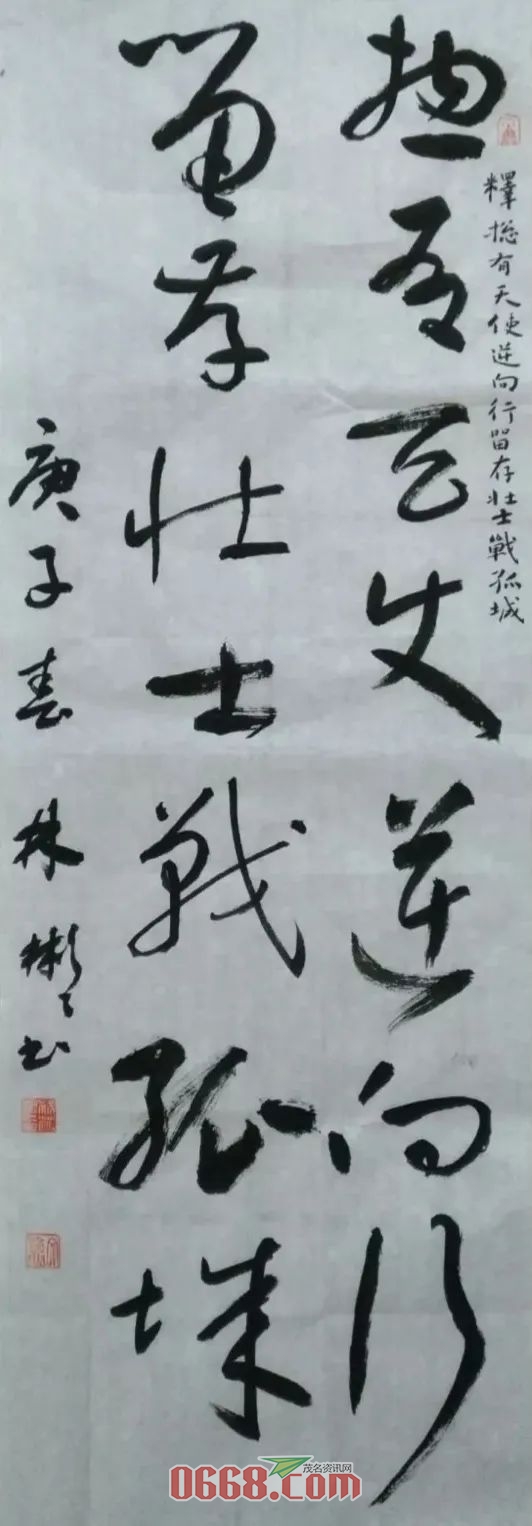 釋揔有天使逆向行留存壮士戰孤城
揔有天使逆向行
留存壮士戰孤城
庚子春 林彬彬书
茂名资讯网
0668.com